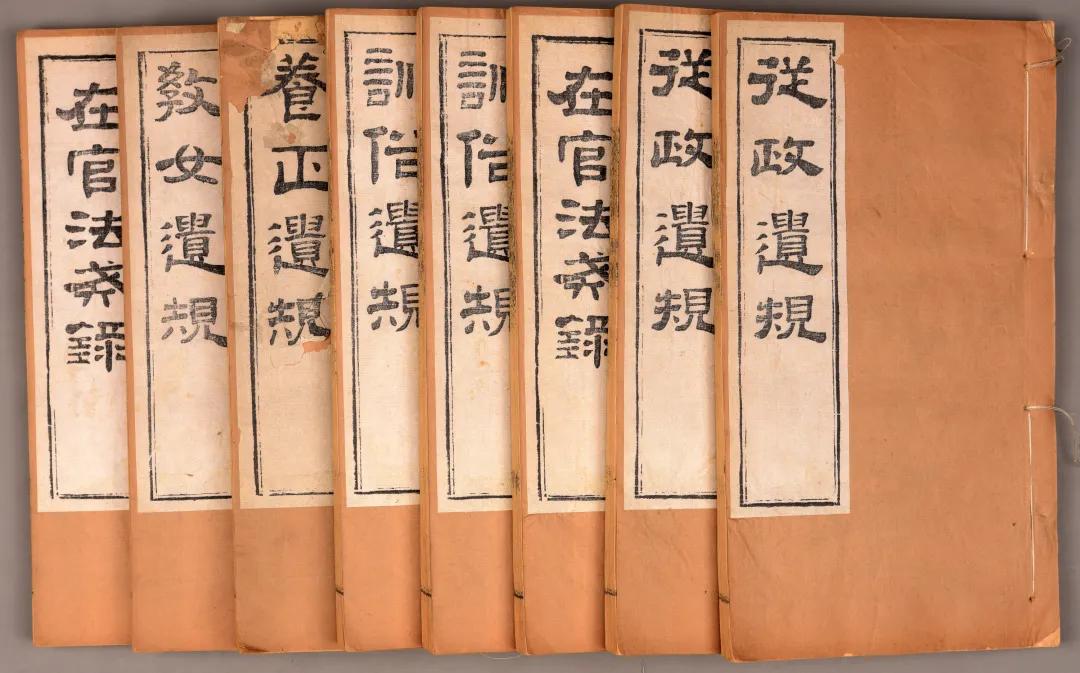 從政遺規
從政遺規
在官法戒錄
訓俗遺規
訓俗遺規
養正遺規
敎女遺規
在官法戒錄